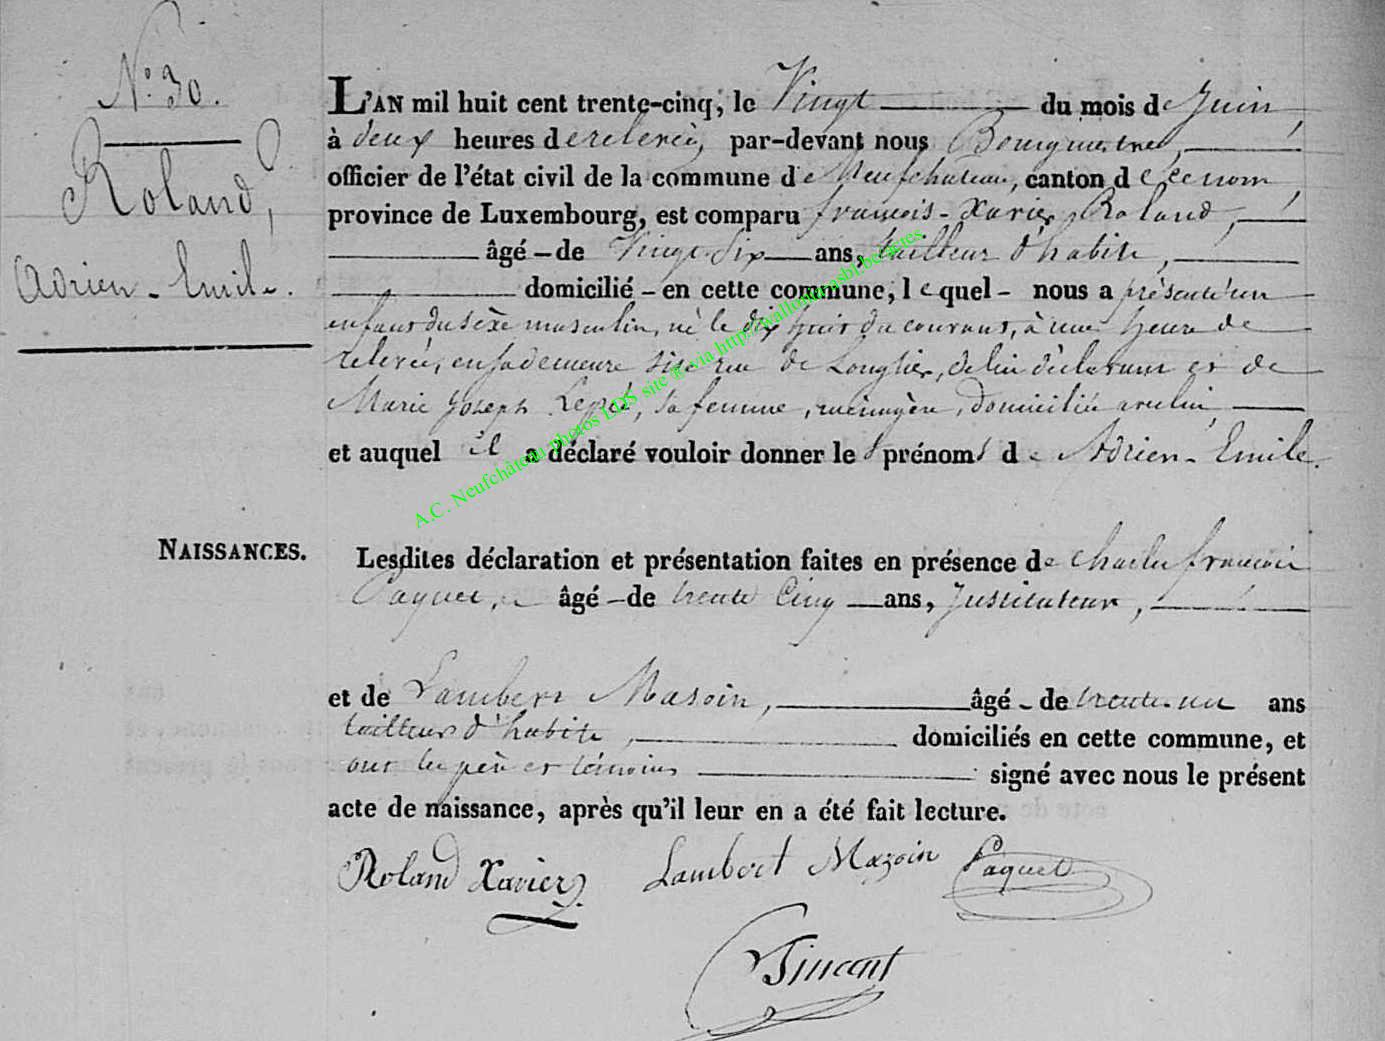 N.° 30.
Roland,
Adrien-Emile.
L'AN mil huit cent trente-cinq, le Vingt du mois de Juin,
à deux heures de relevée, par-devant nous Bourgmestre,
officier de l'état civil de la commune de Neufchateau, canton de ce nom,
province de Luxembourg, est comparu françois-Xavier Roland,
âgé de Vingt-Six ans, tailleur d'habits,
domicilié en cette commune, lequel nous a présenté un
enfant du sèxe masculin, né le dix huit du courant, à une heure de
relevée, en sa demeure sise rue de Longlier, de lui déclarant et de
Marie Joseph, sa femme, ménagère, domiciliée avec lui,
et auquel il a déclaré vouloir donner les prénoms de Adrien-Emile.
NAISSANCES.
Lesdites déclaration et présentation faites en présence de Charles françois
Paquet, âgé de trente Cinq ans, Instituteur,
et de Lambert Masoin, âgé de trente-un ans
tailleur d'habits, domiciliés en cette commune, et
ont les père et témoins signé avec nous le présent
acte de naissance, après qu'il leur en a été fait lecture.
Roland Xavier Lambert Mazoin Paquet
A.C. Neufchâteau Photos LDS site ® via http://wallonia.asbl.be/actes